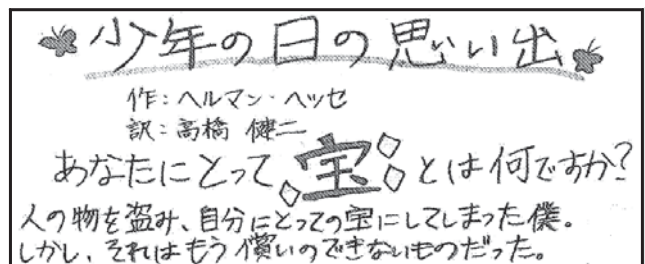 少年の日の思い出
作：ヘルマン・ヘッセ
訳：高橋 健二
あなたにとって、宝とは何ですか？
人の物を盗み、自分にとっての宝にしてしまった僕。
しかし、それはもう償いのできないものだった。